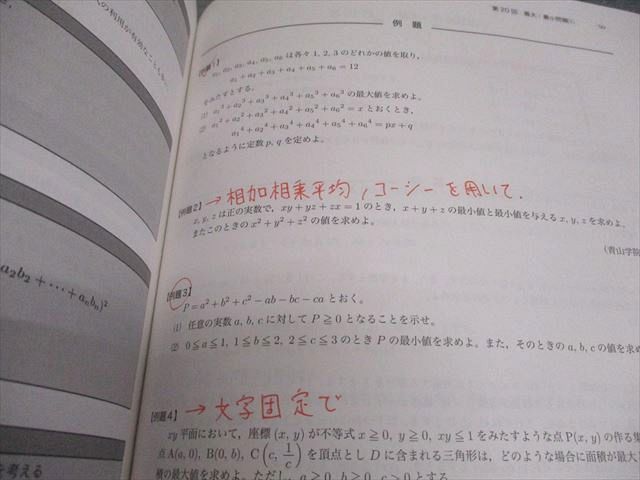 の利用が有効なことも
第20回 最大・最小問題
例 題
【例題1】
a₁, a₂, a₃, a₄, a₅, a₆ は各々 1, 2, 3 のどれかの値を取り，
a₁ + a₂ + a₃ + a₄ + a₅ + a₆ = 12
をみたすとする．
(1) a₁³ + a₂³ + a₃³ + a₄³ + a₅³ + a₆³ の最大値を求めよ．
(2) a₁² + a₂² + a₃² + a₄² + a₅² + a₆² = x とおくとき，
a₁⁴ + a₂⁴ + a₃⁴ + a₄⁴ + a₅⁴ + a₆⁴ = px + q
となるように定数 p, q を定めよ．
【例題2】 → 相加相乗平均，コーシーを用いて．
x, y, z は正の実数で，xy + yz + zx = 1 のとき，x + y + z の最小値と最小値を与える x, y, z を求めよ．
またこのときの x² + y² + z² の値を求めよ．
(青山学院
a₂b₂ + ⋯ + aₙbₙ)²
【例題3】
P = a² + b² + c² − ab − bc − ca とおく．
(1) 任意の実数 a, b, c に対して P ≧ 0 となることを示せ．
(2) 0 ≦ a ≦ 1, 1 ≦ b ≦ 2, 2 ≦ c ≦ 3 のとき P の最小値を求めよ．また，そのときの a, b, c の値を求め
【例題4】 → 文字固定で
xy 平面において，座標 (x, y) が不等式 x ≧ 0, y ≧ 0, xy ≦ 1 をみたすような点 P(x, y) の作る集
点 A(a, 0), B(0, b), C(c, 1/c) を頂点とし D に含まれる三角形は，どのような場合に面積が最大
積の最大値を求めよ．ただし，a ≧ 0, b ≧ 0, c > 0 とする．
を考える